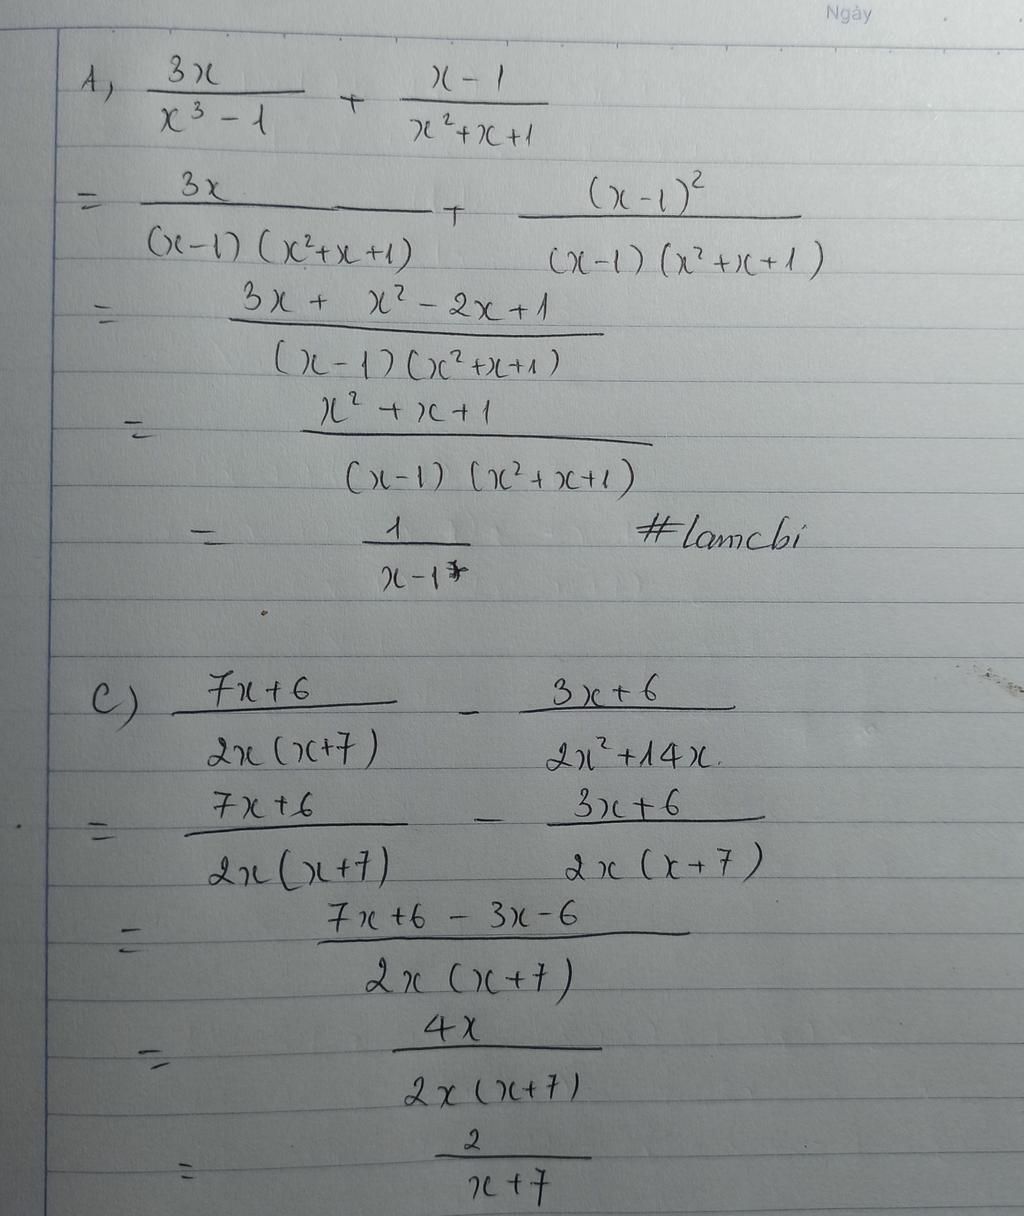 Ngày
A, 3x / x³ - 1 + x - 1 / x² + x + 1
= 3x / (x-1) (x²+x+1) + (x-1)² / (x-1) (x²+x+1)
= 3x + x² - 2x + 1 / (x-1) (x²+x+1)
= x² + x + 1 / (x-1) (x²+x+1)
= 1 / x-1 #lamcbi
C) 7x+6 / 2x (x+7) - 3x+6 / 2x²+14x.
= 7x+6 / 2x (x+7) - 3x+6 / 2x (x+7)
= 7x+6 - 3x-6 / 2x (x+7)
= 4x / 2x (x+7)
= 2 / x+7